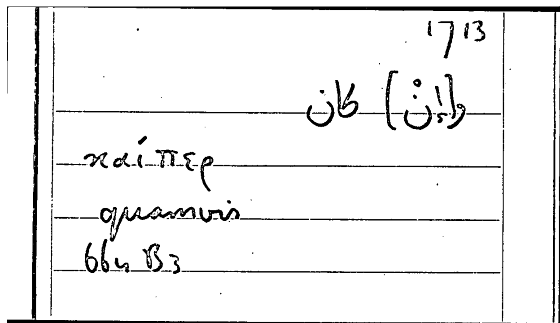 1713
(وإن) كان
καίπερ
quamvis
664 B3